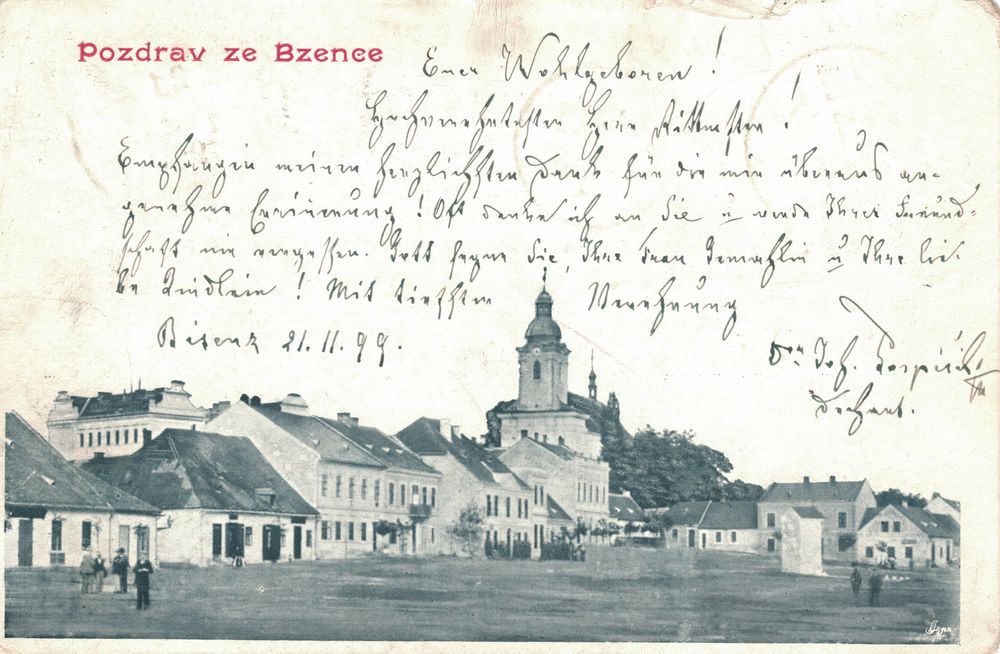 Pozdrav ze Bzence
Euer Wohlgeboren!
Hochverehrtester Herr Rittmster!
Empfangen meinen herzlichsten Dank für die mir überaus an-
genehme Erinnerung! Oft denke ich an Sie u werde Ihrer Freund-
schaft nie vergessen. Gott segne Sie, Ihre Frau Gemahlin u Ihre lie-
be Kindlein! Mit tiefsten Verehrung
Bisenz 21.11.99.
Dr. Joh. Pospíšil
Dechant.